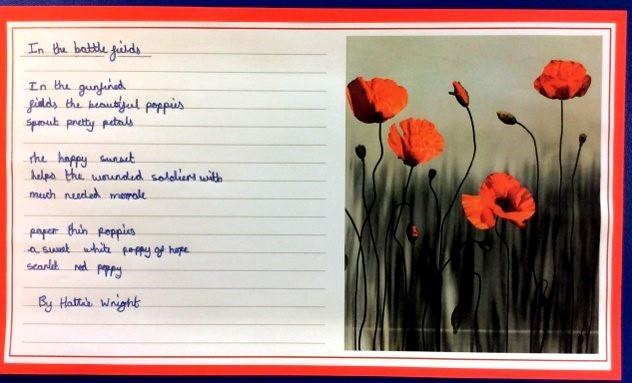 In the battle fields
In the gunfired
fields the beautiful poppies
sprout pretty petals
the happy sunset
helps the wounded soldiers with
much needed morale
paper thin poppies
a sweet white poppy of hope
scarlet red poppy
By Hattie Wright